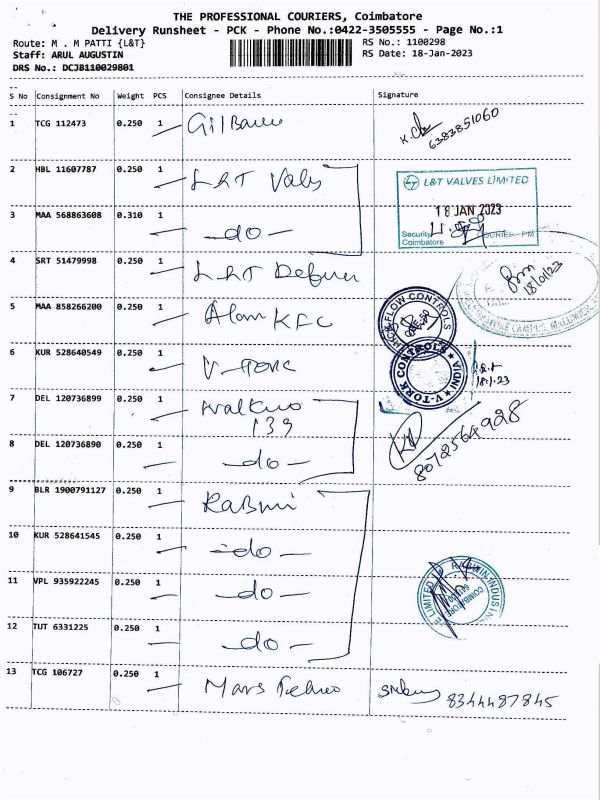 THE PROFESSIONAL COURIERS, Coimbatore
Delivery Runsheet - PCK - Phone No.:0422-3505555 - Page No.:1
Route: M . M PATTI {L&T}
RS No.: 1100298
Staff: ARUL AUGUSTIN
RS Date: 18-Jan-2023
DRS No.: DCJB110029801
S No Consignment No Weight PCS Consignee Details Signature
1 TCG 112473 0.250 1
6383851060
2 HBL 11607787 0.250 1 L&T Valvs
L&T VALVES LIMITED
18 JAN 2023
Security
Coimbatore
3 MAA 568863608 0.310 1 -do-
4 SRT 51479998 0.250 1 L&T
18/01/23
5 MAA 858266200 0.250 1 KFC
FLOW CONTROLS
6 KUR 528640549 0.250 1 V-TORK
V-TORK CONTROLS INDIA
18.1.23
7 DEL 120736899 0.250 1
139
8 DEL 120736890 0.250 1 -do-
8072564928
9 BLR 1900791127 0.250 1
10 KUR 528641545 0.250 1 -do-
11 VPL 935922245 0.250 1 -do-
LIMITED
COIMBATORE
12 TUT 6331225 0.250 1 -do-
13 TCG 106727 0.250 1 Mars
8344487845